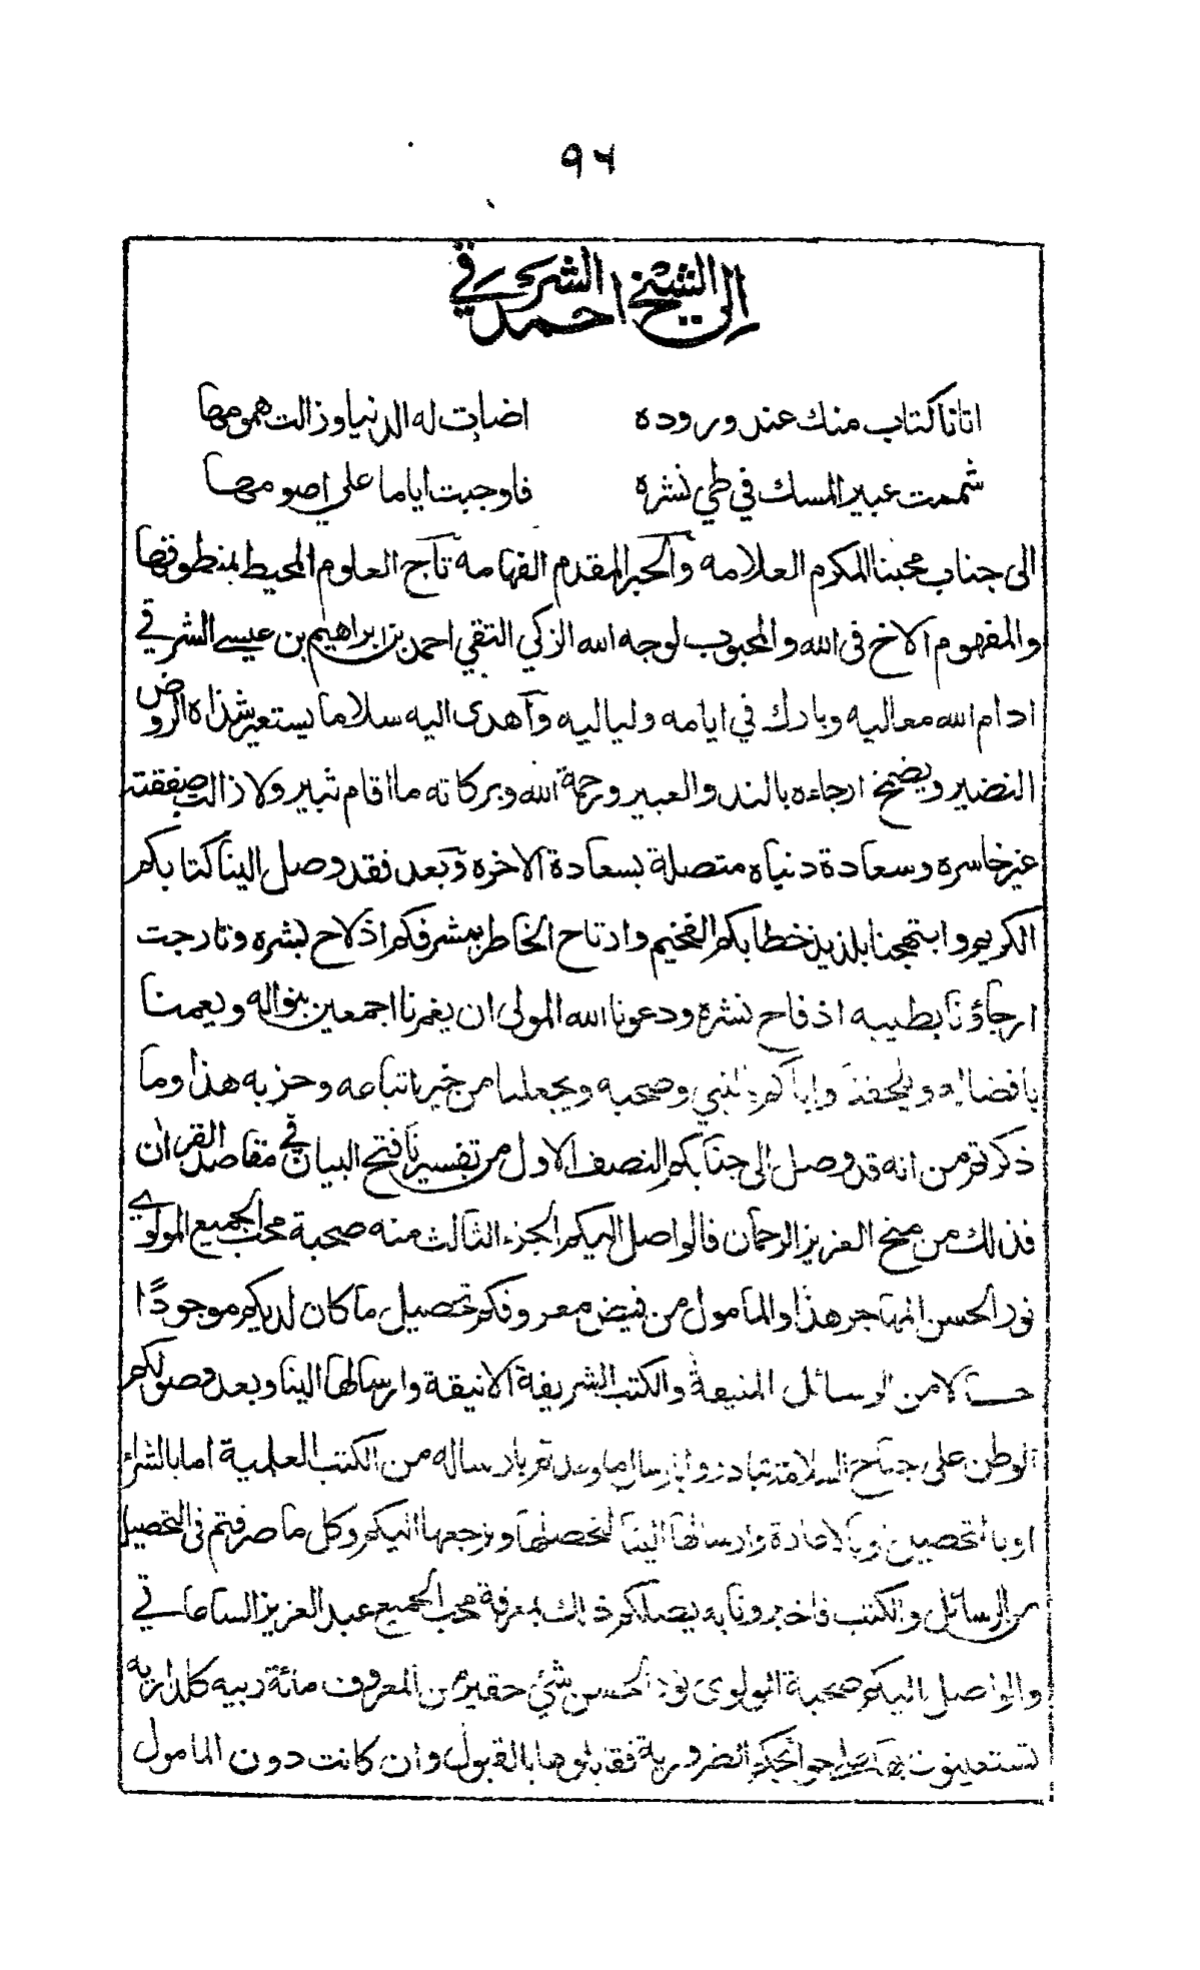 ٩٦
الى الشيخ احمد الشرقي
اتانا كتاب منك عند وروده اضاءت له الدنيا وزالت همومها
شممت عبير المسك في طي نشره فاوجبت اياما علي اصومها
الى جناب محبنا المكرم العلامه والحبر المقدم الفهامه تاج العلوم المحيط بمنطوقها
والمفهوم الاخ فى الله والمحبوب لوجه الله الزكي التقي احمد بن ابراهيم بن عيسے الشرقي
ادام الله معاليه وبارك في ايامه ولياليه وأهدى اليه سلاما يستعير شذاه الروض
النضير ويضمخ ارجاءه بالند والعبير ورحمة الله وبركاته ما اقام ثبير ولا زالت صفقته
غير خاسره وسعادة دنياه متصلة بسعادة الاخره وبعد فقد وصل الينا كتابكم
الكريم وابتهجنا بلذيذ خطابكم الفخيم وارتاح الخاطر بمشرفكم اذ لاح بشره وتارجت
ارجاؤنا بطيبه اذ فاح نشره ودعونا الله المولى ان يغمرنا اجمعين بنواله ويعمنا
بافضاله ويحفنا واياكم بالنبي وصحبه ويجعلنا من خير اتباعه وحزبه هذا وما
ذكرتم من انه قد وصل الى جنابكم النصف الاول من تفسيرنا فتح البيان في مقاصد القران
فذلك من منح العزيز الرحمان فالواصل اليكم الجزء الثالث منه صحبة محب الجميع المولوي
نور الحسن المهاجر هذا والمامول من فيض معروفكم تحصيل ما كان لديكم موجودًا
حالا من الرسائل المنيعة والكتب الشريفة الانيقة وارسالها الينا وبعد وصولكم
الوطن على جناح السلامة تبادروا بارسال ما وعدتم بارساله من الكتب العلمية اما بالشراء
او بالتحصيل او بالاعادة وارسالها الينا لنحصلها ونرجعها اليكم وكل ما صرفتم فى التحصيل
من الرسائل والكتب فاخبرونا به يصلكم ذلك بمعرفة محب الجميع عبد العزيز الساعاتي
والواصل اليكم صحبة المولوى نور الحسن شئ حقير من المعروف مائة ربيه كلداريه
تستعينون بها على حوائجكم الضرورية فقابلوها بالقبول وان كانت دون المامول